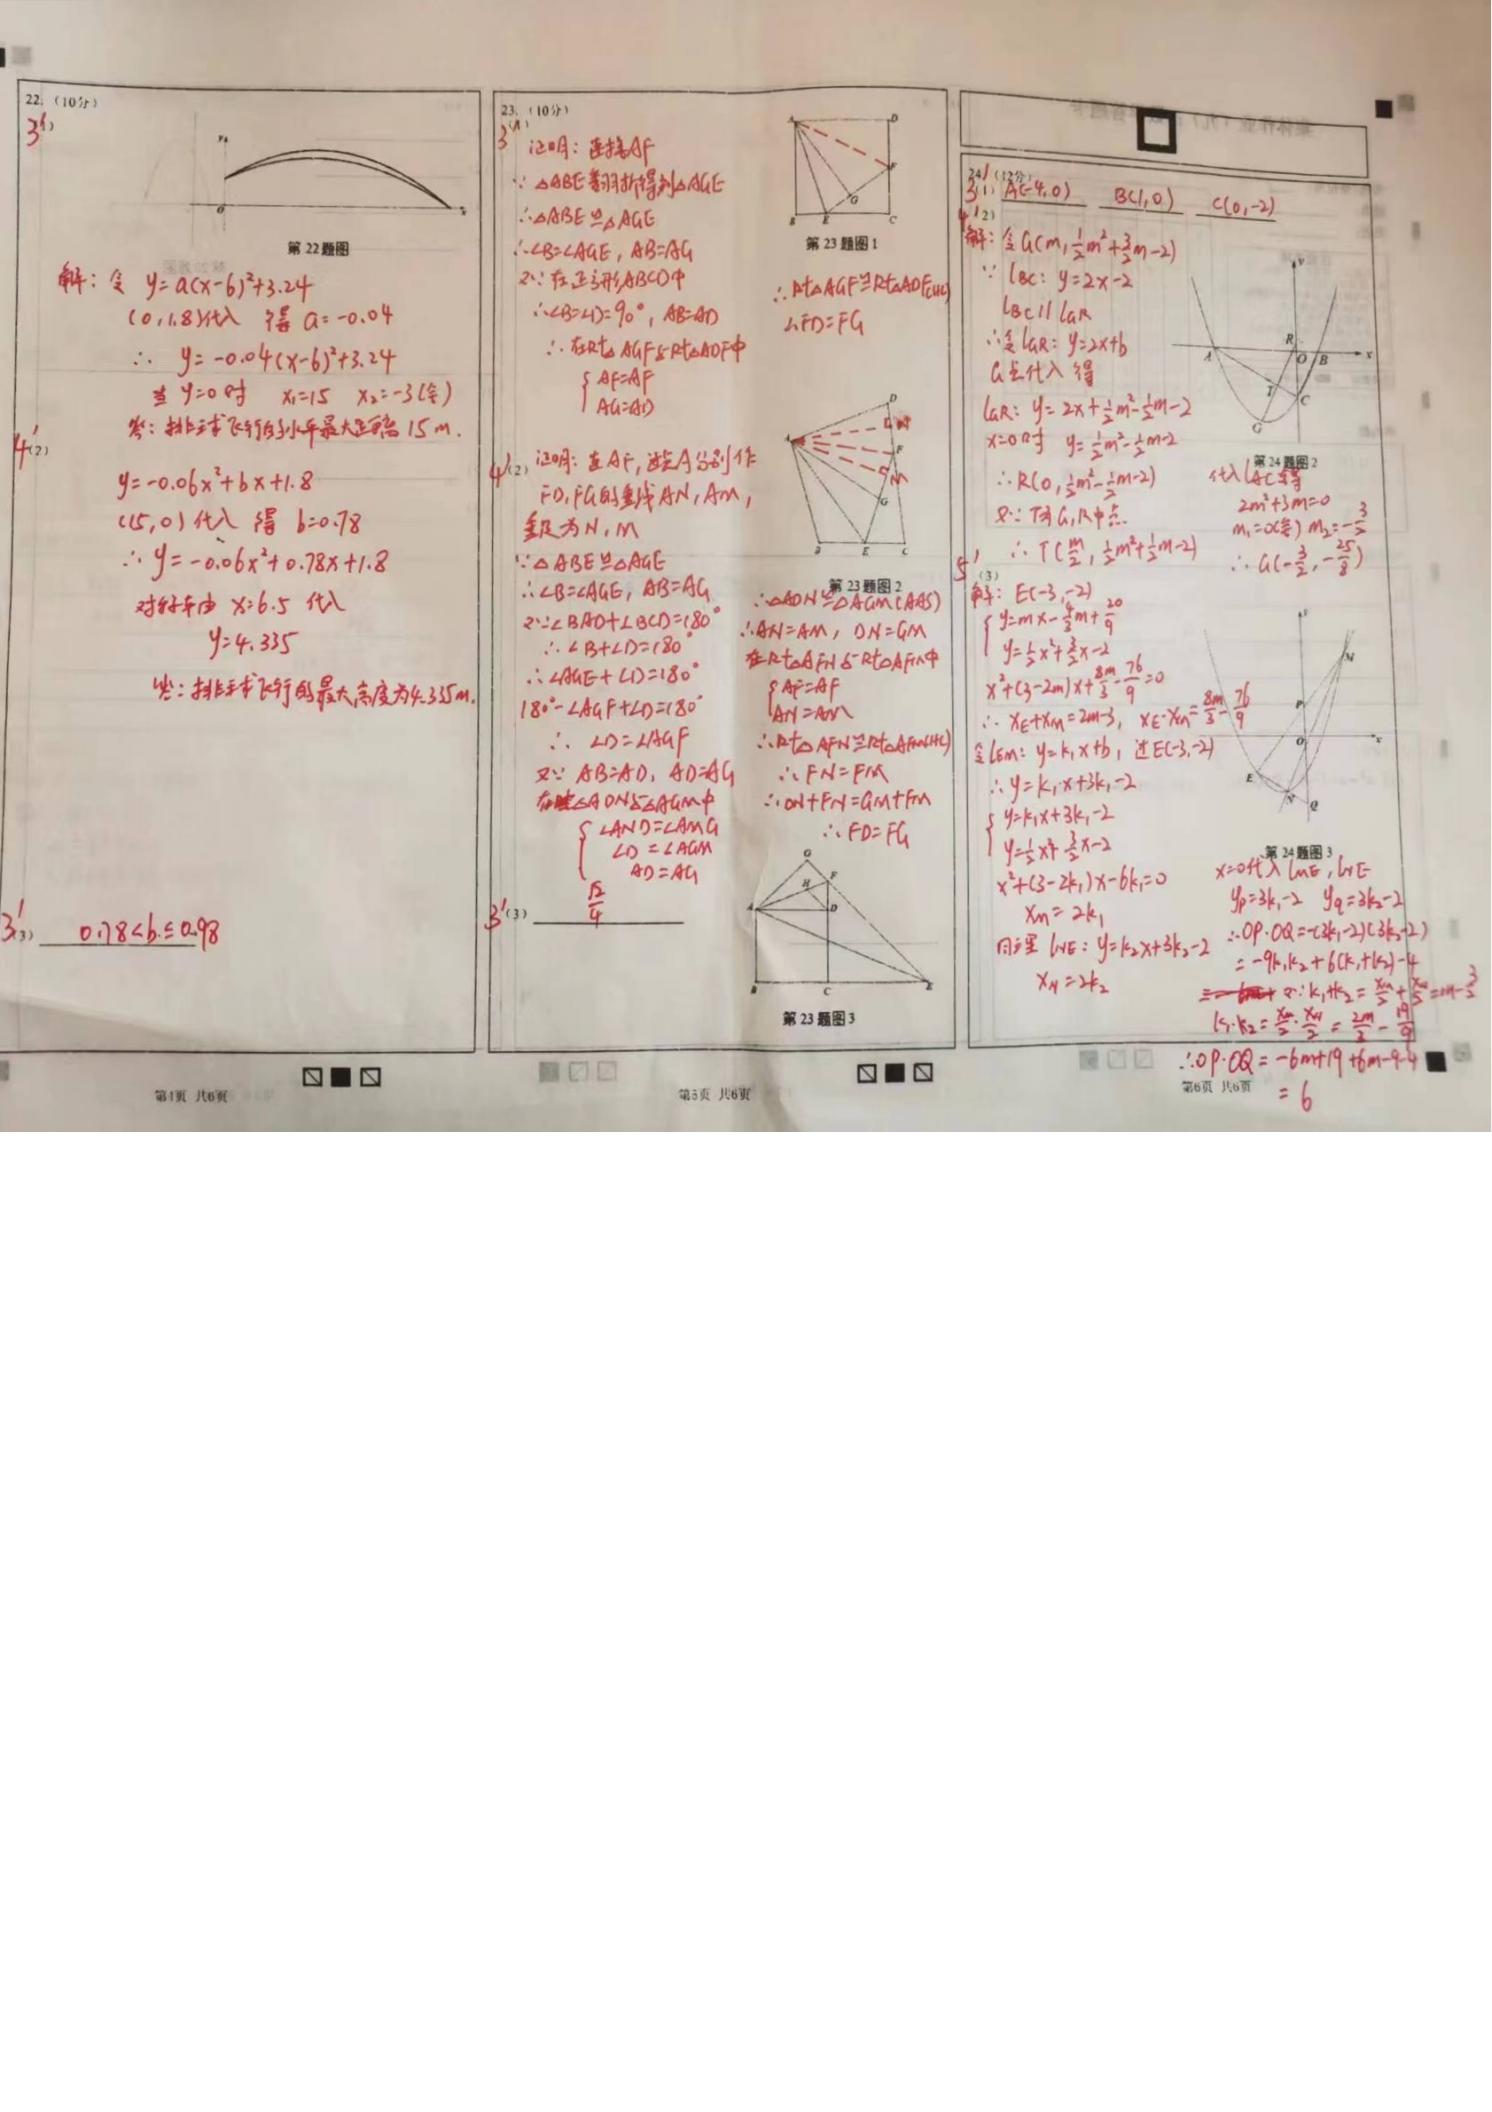 22.（10分）
3'
(1)
y
O
x
第22题图
解：令 y=a(x-6)²+3.24
(0,1.8)代入 得 a=-0.04
∴ y=-0.04(x-6)²+3.24
当 y=0时 x₁=15 x₂=-3(舍)
答：排球飞行的水平最大距离15m.
4'
(2)
y=-0.06x²+bx+1.8
(15,0)代入 得 b=0.78
∴y=-0.06x²+0.78x+1.8
对称轴 x=6.5 代入
y=4.335
答：排球飞行的最大高度为4.335m.
3'
(3) 0.78<b≤0.98
第4页 共6页
23.（10分）
3'
(1)
证明：连接AF
∵△ABE翻折得到△AGE
∴△ABE≌△AGE
∴∠B=∠AGE，AB=AG
又∵在正方形ABCD中
∴∠B=∠D=90°，AB=AD
∴在Rt△AGF与Rt△ADF中
AF=AF
AG=AD
A
D
F
G
B
E
C
第23题图1
∴Rt△AGF≌Rt△ADF(HL)
∠FD=FG
4'
(2) 证明：连AF，过点A分别作
FD,FG的垂线AN,AM，
垂足为N,M
∵△ABE≌△AGE
∴∠B=∠AGE，AB=AG
又∵∠BAD+∠BCD=180°
∴∠B+∠D=180°
∴∠AGE+∠D=180°
180°-∠AGF+∠D=180°
∴ ∠D=∠AGF
又∵ AB=AD，AD=AG
△ADN与△AGM中
∠AND=∠AMG
∠D=∠AGM
AD=AG
D
F
A
M
G
B
E
C
第23题图2
∴△ADN≌△AGM(AAS)
∴AN=AM，DN=GM
在Rt△AFN与Rt△AFM中
AF=AF
AN=AM
∴Rt△AFN≌Rt△AFM(HL)
∴FN=FM
∴DN+FN=GM+FM
∴FD=FG
3'
(3) √2/4
G
F
H
A
D
B
C
E
第23题图3
第5页 共6页
24.（12分）
3'
(1) A(-4,0) B(1,0) C(0,-2)
4'
(2)
解：令G(m,½m²+3/2m-2)
∵ lBC: y=2x-2
lBC∥lGR
∴令lGR: y=2x+b
G点代入得
lGR: y=2x+½m²-½m-2
x=0时 y=½m²-½m-2
∴R(0,½m²-½m-2)
又∵T为G,R中点
∴T(m/2,½m²+½m-2)
y
A
R
O
B
x
T
C
G
第24题图2
代入lAC得
2m²+3m=0
m₁=0(舍) m₂=-3/2
∴G(-3/2,-25/8)
5'
(3)
解：E(-3,-2)
y=mx-4/3m+20/9
y=½x²+3/2x-2
x²+(3-2m)x+8m/3-76/9=0
∴xE+xM=2m-3，xE·xM=8m/3-76/9
令lEM: y=k₁x+b，过E(-3,-2)
∴y=k₁x+3k₁-2
y=k₁x+3k₁-2
y=½x²+3/2x-2
x²+(3-2k₁)x-6k₁=0
xM=2k₁
同理 lNE: y=k₂x+3k₂-2
xN=2k₂
y
M
P
O
x
E
N
Q
第24题图3
x=0代入lME,lNE
yP=3k₁-2 yQ=3k₂-2
∴OP·OQ=-(3k₁-2)(3k₂-2)
=-9k₁k₂+6(k₁+k₂)-4
又∵k₁+k₂=xM/2+xN/2=m-3/2
k₁·k₂=xM/2·xN/2=2m/3-19/9
∴OP·OQ=-6m+19+6m-9-4
=6
第6页 共6页